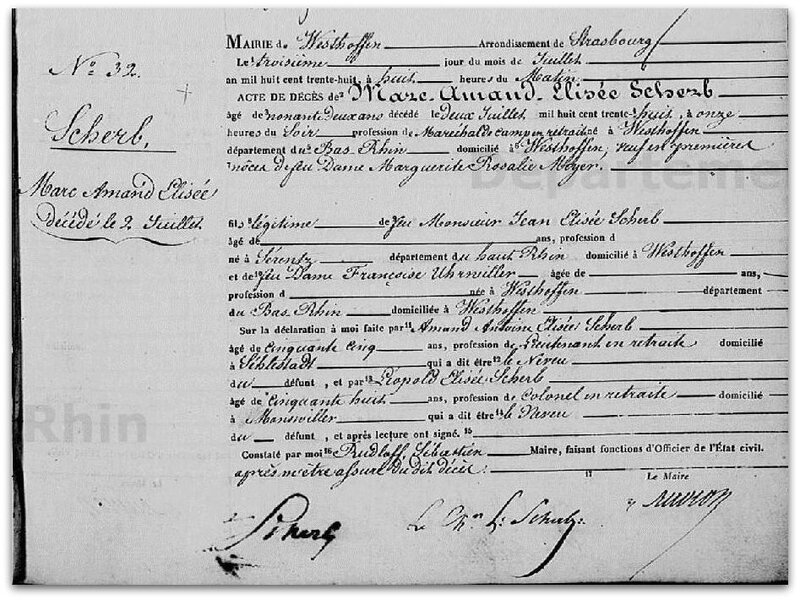 N° 32.
Scherb,
Marc Amand Elisée
décédé le 2 Juillet
MAIRIE de Westhoffen Arrondissement de Strasbourg
Le troisième jour du mois de Juillet
an mil huit cent trente-huit, à huit heures du Matin
ACTE DE DÉCÈS de Marc Amand Elisée Scherb
âgé de nonante deux ans décédé le deux Juillet mil huit cent trente-huit, à onze
heures du Soir profession de Maréchal de camp en retraite né à Westhoffen
département du Bas Rhin domicilié à Westhoffen, veuf en premières
nôces de feu Dame Marguerite Rosalie Meyer.
fils légitime de feu Monsieur Jean Elisée Scherb
âgé de ans, profession d
né à Sérentz département du haut Rhin domicilié à Westhoffen
et de feu Dame Françoise Uhrwiller âgée de ans,
profession d née à Westhoffen département
du Bas Rhin domiciliée à Westhoffen
Sur la déclaration à moi faite par 11 Amand Antoine Elisée Scherb
âgé de Cinquante Cinq ans, profession de Lieutenant en retraite domicilié
à Schlestadt qui a dit être 12 le Neveu
du défunt, et par 13 Léopold Elisée Scherb
âgé de Cinquante huit ans, profession de Colonel en retraite domicilié
à Monswiller qui a dit être 14 le Neveu
du défunt, et après lecture ont signé. 15
Constaté par moi 16 Rudloff, Sébastien Maire, faisant fonctions d'Officier de l'État civil.
après m'être assuré du dit décès. 17
Le Maire
Scherb
Département
Rhin